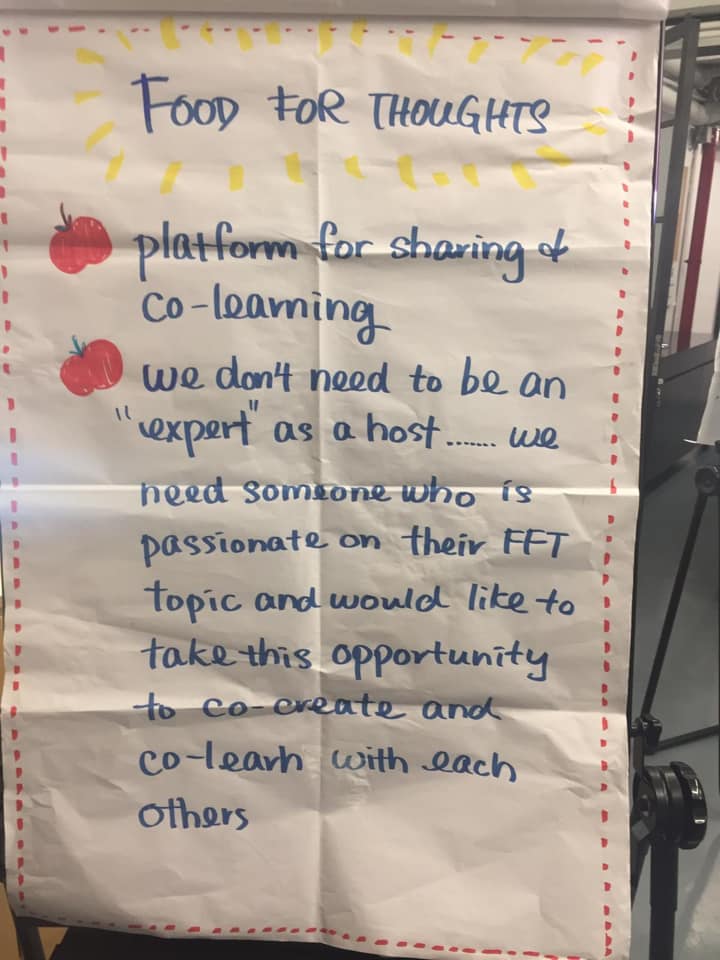 FOOD FOR THOUGHTS
platform for sharing &
co-learning
we don't need to be an
"expert" as a host....... we
need someone who is
passionate on their FFT
topic and would like to
take this opportunity
to co-create and
co-learn with each
others